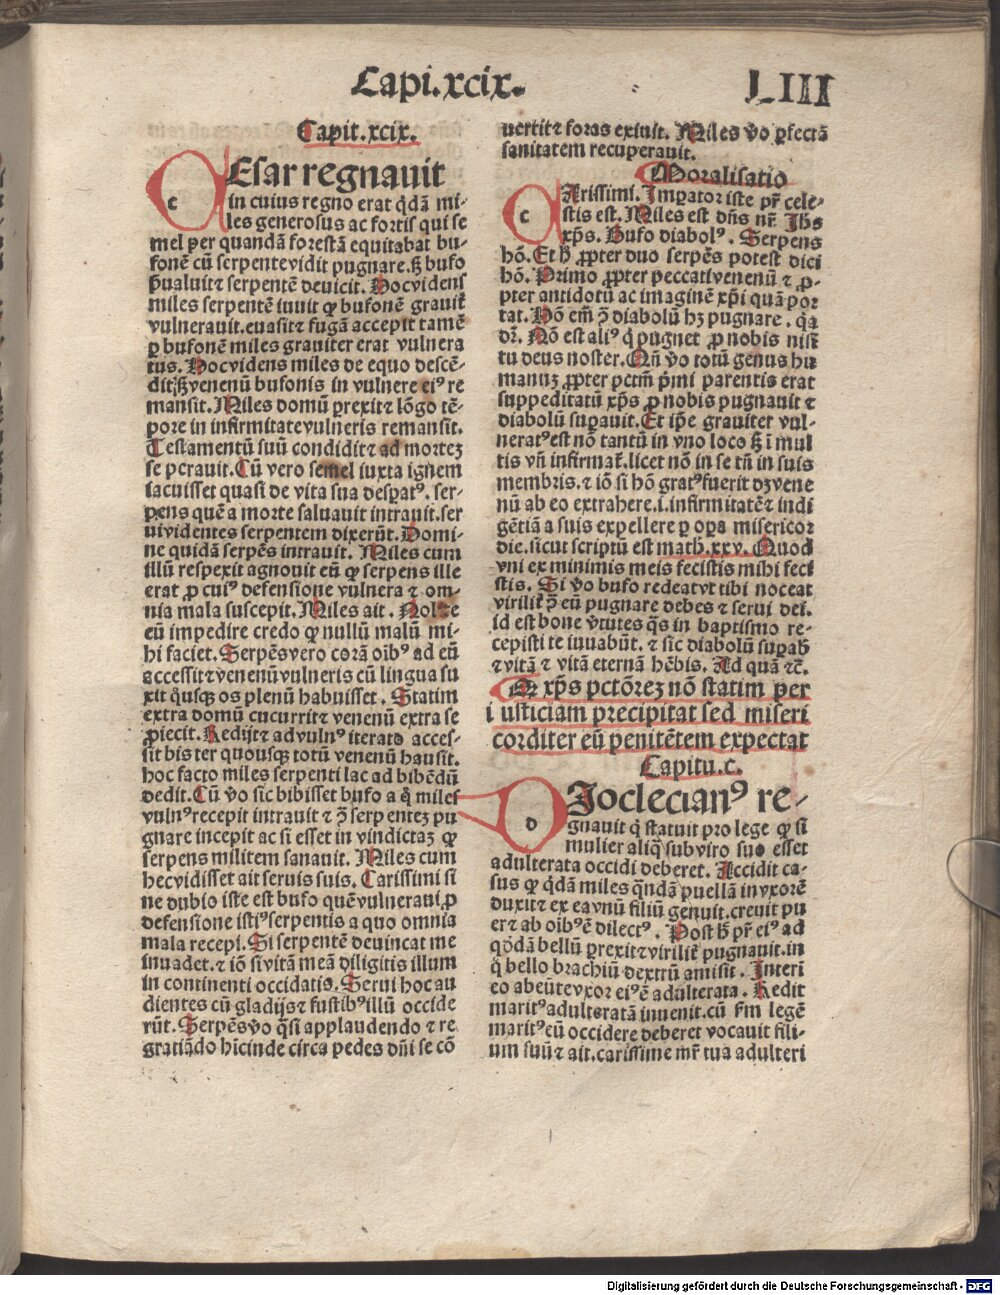 Capi.xcix.
LIII
Capit.xcix.
CEsar regnauit
in cuius regno erat qͥdā mi-
les generosus ac fortis qui se
mel per quandā forestā equitabat bu-
fonē cū serpente vidit pugnare. sꝫ bufo
p̄ualuit ⁊ serpentē deuicit. Hoc videns
miles serpentē iuuit ꝙ bufonē grauit̄
vulnerauit. euasit ⁊ fugā accepit tamē
ꝑ bufonē miles grauiter erat vulnera
tus. Hoc videns miles de equo descē-
dit. sꝫ venenū bufonis in vulnere eiꝰ re
mansit. Miles domū prexit ⁊ lōgo tē-
pore in infirmitate vulneris remansit.
Testamentū suū condidit ⁊ ad mortez
se perauit. Cū vero semel iuxta ignem
iacuisset quasi de vita sua despatꝰ. ser-
pens quē a morte saluauit intrauit. ser
ui videntes serpentem dixerūt. Domi-
ne quidā serpēs intrauit. Miles cum
illū respexit agnouit eū ꝙ serpens ille
erat ꝓ cuiꝰ defensione vulnera ⁊ om-
nia mala suscepit. Miles ait. Nolite
eū impedire credo ꝙ nullū malū mi-
hi faciet. Serpēs vero corā oībꝰ ad eū
accessit ⁊ venenū vulneris cū lingua su
xit qͦusqꝫ os plenū habuisset. Statim
extra domū cucurrit ⁊ venenū extra se
ꝓiecit. Redijt ⁊ ad vulnꝰ iterato acces-
sit bis ter quousqꝫ totū venenū hausit.
hoc facto miles serpenti lac ad bibēdū
dedit. Cū v̄o sic bibisset bufo a q̄ miles
vulnꝰ recepit intrauit ⁊ ꝯ̄ serpentez pu
gnare incepit ac si esset in vindictaz ꝙ
serpens militem sanauit. Miles cum
hec vidisset ait seruis suis. Carissimi si
ne dubio iste est bufo quē vulneraui ꝓ
defensione istiꝰ serpentis a quo omnia
mala recepi. Si serpentē deuincat me
inuadet. ⁊ iō si vitā meā diligitis illum
in continenti occidatis. Serui hoc au
dientes cū gladijs ⁊ fustibꝰ illū occide
rūt. Serpēs v̄o q̄si applaudendo ⁊ re
gratiādo hincinde circa pedes dn̄i se cō
uertit ⁊ foras exiuit. Miles v̄o ꝑfectā
sanitatem recuperauit.
Moralisatio
CArissimi. Imꝑator iste pr̄ cele-
stis est. Miles est dn̄s nr̄. Ihs
xp̄s. Bufo diabolꝰ. Serpens
hō. Et h̄ ꝓpter duo serpēs potest dici
hō. Primo ꝓpter peccati venenū ⁊ ꝓ-
pter antidotū ac imaginē xp̄i quā por
tat. Hō em̄ ꝯ̄ diabolū hꝫ pugnare. qꝛ
dr̄. Nō est aliꝰ q̄ pugnet ꝓ nobis nisi
tu deus noster. Qn̄ v̄o totū genus hu
manuꝫ ꝓpter pctm̄ pͥmi parentis erat
suppeditatū xp̄s ꝓ nobis pugnauit ⁊
diabolū suꝑauit. Et ip̄e grauiter vul-
neratꝰ est nō tantū in vno loco sꝫ ī mul
tis vn̄ infirmat̄. licet nō in se tn̄ in suis
membris. ⁊ iō si hō gratꝰ fuerit dꝫ vene
nū ab eo extrahere. i. infirmitatē ⁊ indi
gētiā a suis expellere ꝑ oꝑa misericor
die. sicut scriptū est math. xxv. Quod
vni ex minimis meis fecistis mihi feci
stis. Si v̄o bufo redeat vt tibi noceat
virilit̄ ꝯ̄ eū pugnare debes ⁊ serui dei.
id est bone v̄tutes q̄s in baptismo re-
cepisti te iuuabūt. ⁊ sic diabolū suꝑab̄
⁊ vitā ⁊ vitā eternā hēbis. Ad quā ⁊c̄.
Q xp̄s pctōrez nō statim per
iusticiam precipitat sed miseri
corditer eū penitētem expectat
Capitu.c.
DIoclecianꝰ re-
gnauit q̄ statuit pro lege ꝙ si
mulier aliq̄ sub viro suo esset
adulterata occidi deberet. Accidit ca-
sus ꝙ qͥdā miles q̄ndā puellā in vxorē
duxit ⁊ ex ea vnū filiū genuit. creuit pu
er ⁊ ab oībꝰ ē dilectꝰ. Post h̄ pr̄ eiꝰ ad
qͦddā bellū prexit ⁊ virilit̄ pugnauit. in
q̄ bello brachiū dextrū amisit. Interī
eo abeūte vxor eiꝰ ē adulterata. Redit
maritꝰ adulteratā inuenit. cū ẜm legē
maritꝰ eū occidere deberet vocauit fili-
um suū ⁊ ait. carissime mr̄ tua adulteri
Digitalisierung gefördert durch die Deutsche Forschungsgemeinschaft - DFG